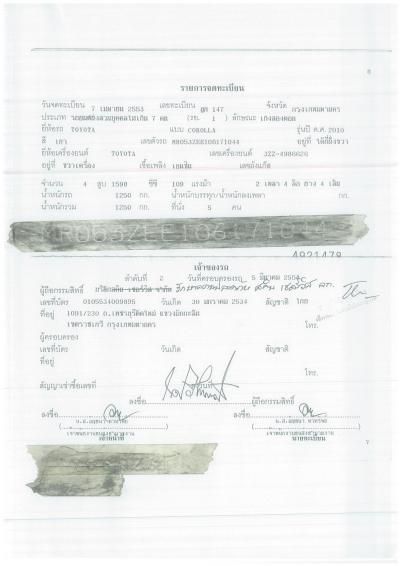 6
รายการจดทะเบียน
วันจดทะเบียน 7 เมษายน 2553 เลขทะเบียน ฎศ 147 จังหวัด กรุงเทพมหานคร
ประเภท รถยนต์นั่งส่วนบุคคลไม่เกิน 7 คน (รย. 1 ) ลักษณะ เก๋งสองตอน
ยี่ห้อรถ TOYOTA แบบ COROLLA รุ่นปี ค.ศ. 2010
สี เทา เลขตัวรถ MR053ZEE106171044 อยู่ที่ ใต้ที่นั่งขวา
ยี่ห้อเครื่องยนต์ TOYOTA เลขเครื่องยนต์ 3ZZ-4986626
อยู่ที่ ขวาเครื่อง เชื้อเพลิง เบนซิน เลขถังแก๊ส
จำนวน 4 สูบ 1598 ซีซี 109 แรงม้า 2 เพลา 4 ล้อ ยาง 4 เส้น
น้ำหนักรถ 1250 กก. น้ำหนักบรรทุก/น้ำหนักลงเพลา กก.
น้ำหนักรวม 1250 กก. ที่นั่ง 5 คน
4921478
เจ้าของรถ
ลำดับที่ 2 วันที่ครอบครองรถ 5 มีนาคม
ผู้ถือกรรมสิทธิ์
เลขที่บัตร 0105534009895 วันเกิด 30 เมษายน 2534 สัญชาติ ไทย
ที่อยู่ 1091/230 ถ.เพชรบุรีตัดใหม่ แขวงมักกะสัน
เขตราชเทวี กรุงเทพมหานคร โทร.
ผู้ครอบครอง
เลขที่บัตร วันเกิด สัญชาติ
ที่อยู่ โทร.
สัญญาเช่าซื้อเลขที่
ลงชื่อ ผู้ถือกรรมสิทธิ์
ลงชื่อ ลงชื่อ
เจ้าหน้าที่ นายทะเบียน
7